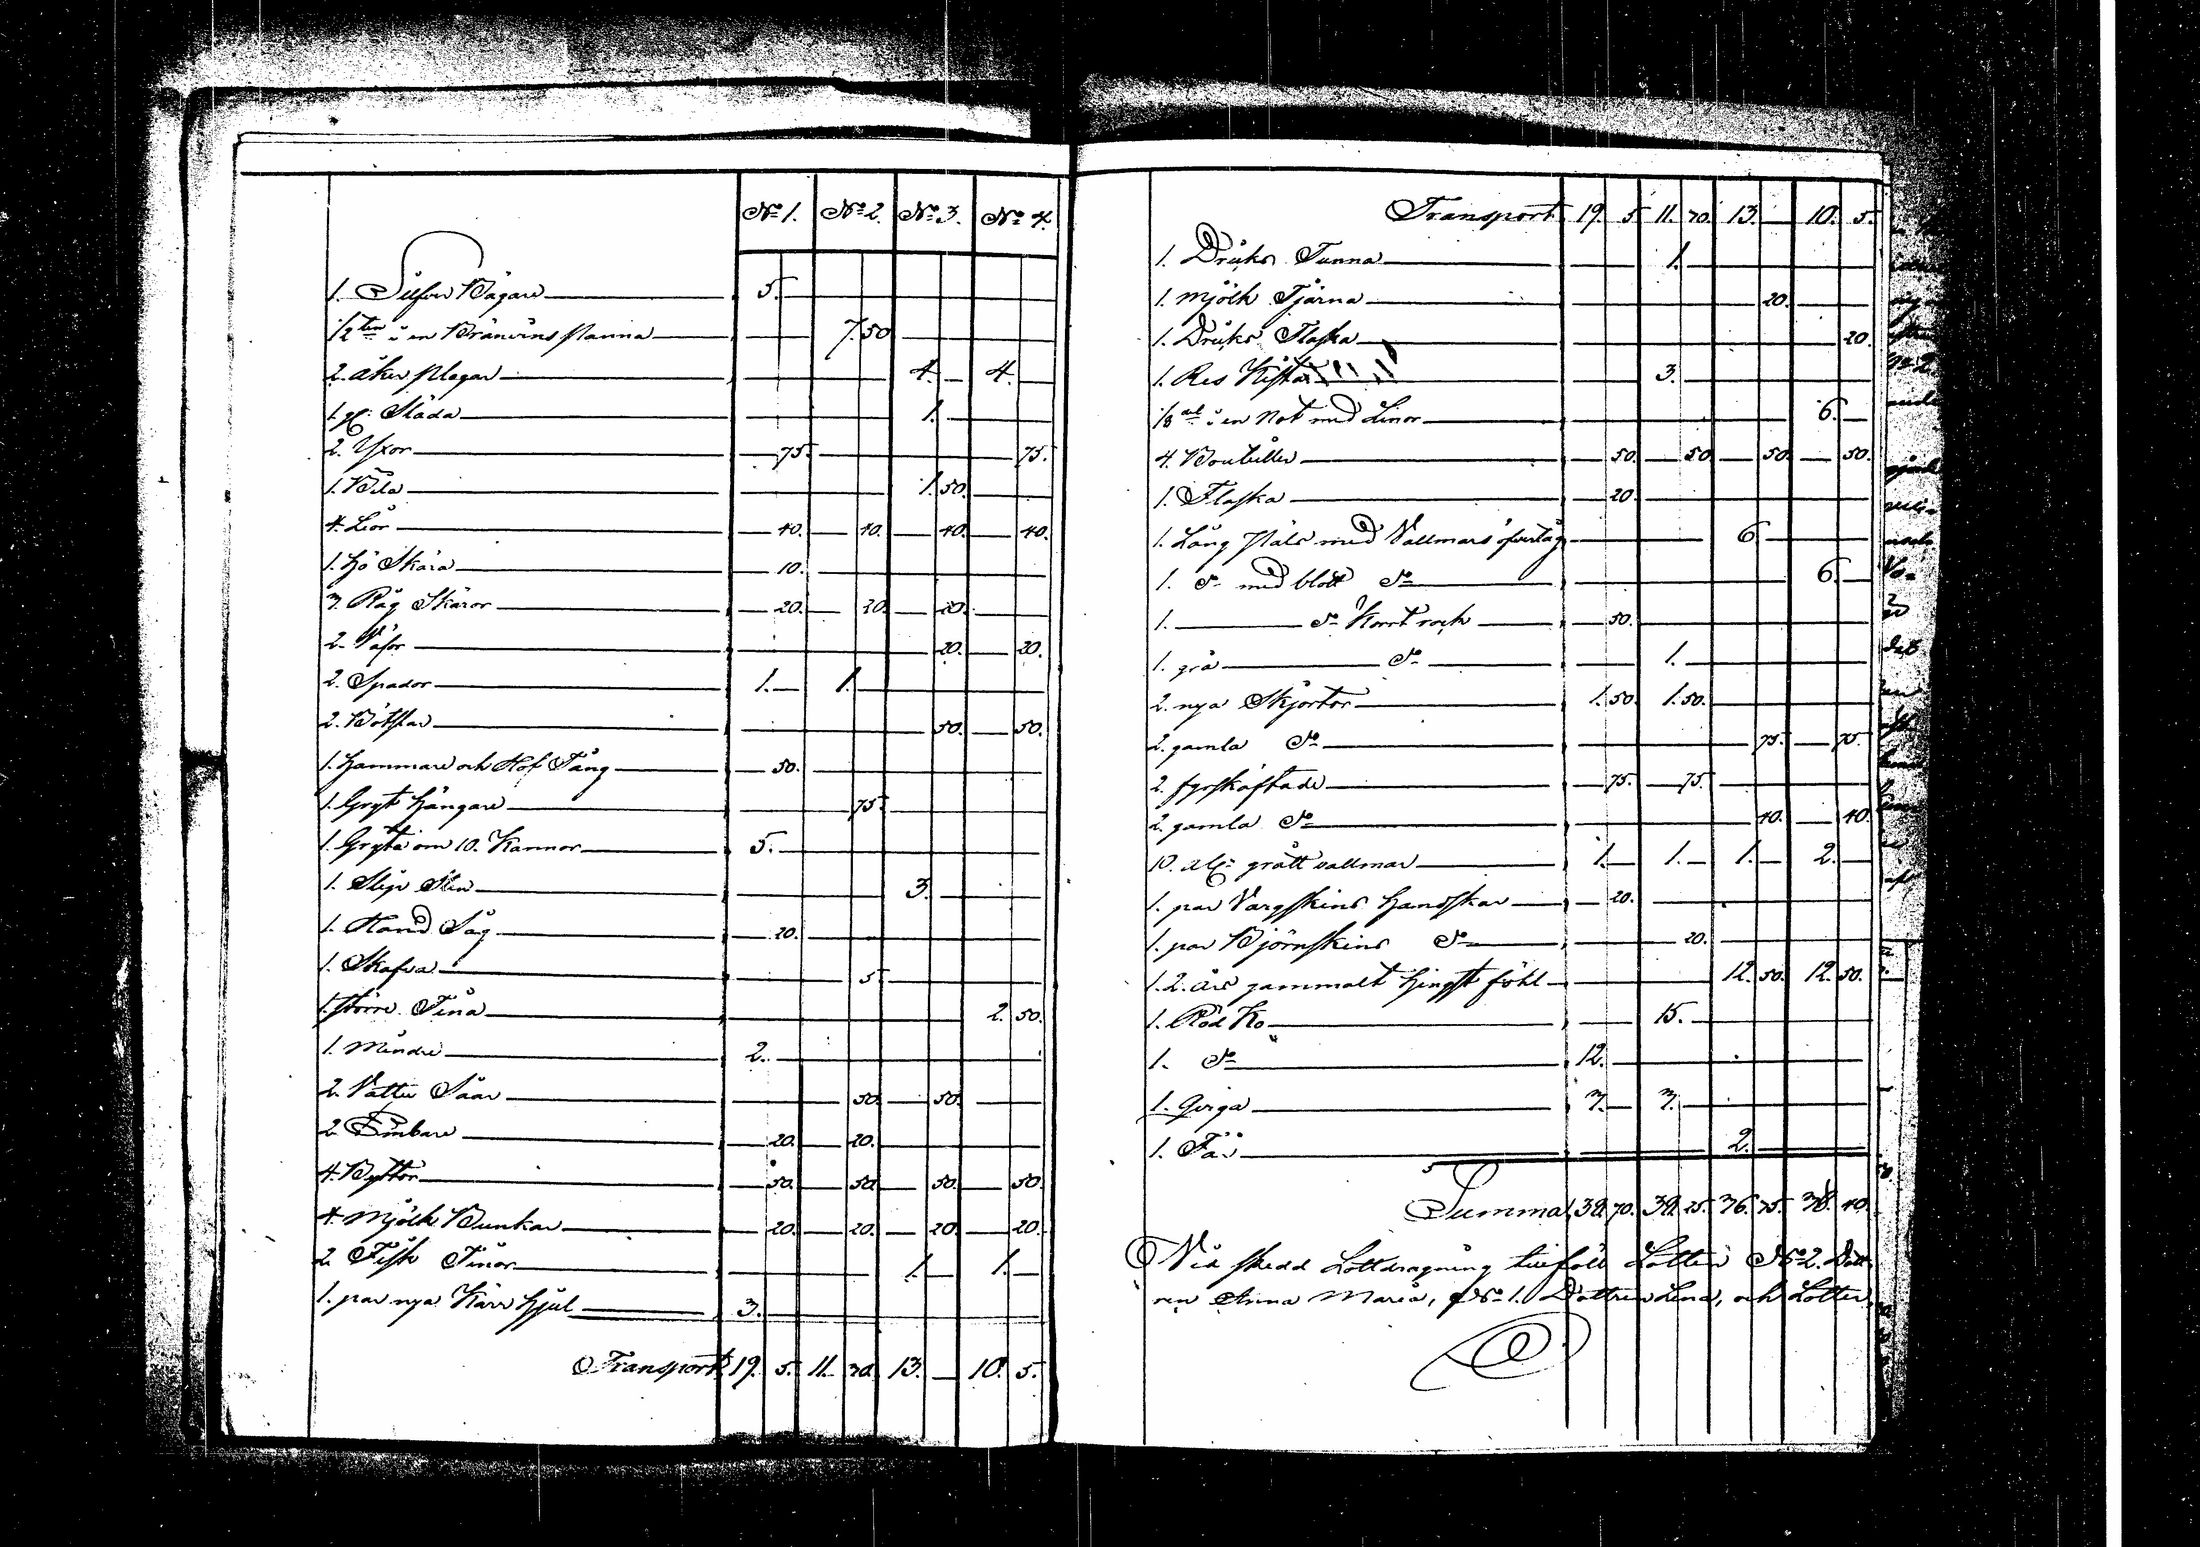 No 1. No 2. No 3. No 4.
1. Silfver Bägare 5.
1/2ten i en Bränvins panna 7. 50
2. åker plogar 4. 4.
1. gl: Släda 1.
2. Yxor 75. 75.
1. Bila 1. 50.
4. Liör 40. 40. 40. 40.
1. hö Skära 10.
3. Råg Skäror 20. 20. 20.
2. 20. 20.
2. Spador 1. 1.
2. Båtskar 50. 50.
1. Hammare och Hof Tång 50.
1. Gryt hängare 75.
1. Gryta om 10. Kannor 5.
1. Slip Sten 3.
1. Hand Såg 20.
1. Skafva 5
1. större Tina 2. 50.
1. Mindre 2.
2. Vatten Såar 50. 50.
2. Embare 20. 20.
4. Byttor 50. 50. 50. 50.
4. Mjölk Bunkar 20. 20. 20. 20.
2. Fisk Tinor 1. 1.
1. par nya Kärr hjul 3.
Transport 19. 5. 11. 70. 13. 10. 5.
Transport 19. 5. 11. 70. 13. 10. 5.
1. Dricks Tunna 1.
1. Mjölk Tjärna 20.
1. Dricks Flaska 20.
1. Res Kista 3.
1/8del i en Not med Linor 6.
4. Bouteller 50. 50. 50. 50.
1. Flaska 20.
1. Lång päls med Vallmars öfvertåg 6
1. do med blått do 6.
1. do Kort rock 50.
1. grå do 1.
2. nya Skjortor 1. 50. 1. 50.
2. gamla do 75. 75.
2. fyrskäftade 75. 75.
2. gamla do 40. 40.
10. aln: grått vallmar 1. 1. 1. 2.
1. par Vargskins handskar 20.
1. par Björnskins do 20.
1. 2. års gammalt hingst föhl 12. 50. 12. 50.
1. Röd Ko 15.
1. do 12.
1. qviga 3. 3.
1. Får 2.
Summa 38. 70. 38. 25. 36. 75. 38. 40.
Vid skedd Lottdragning tillföll Lotten No 2. Dott
ren Anna Maria, No 1. Dottren Lena, och Lotten